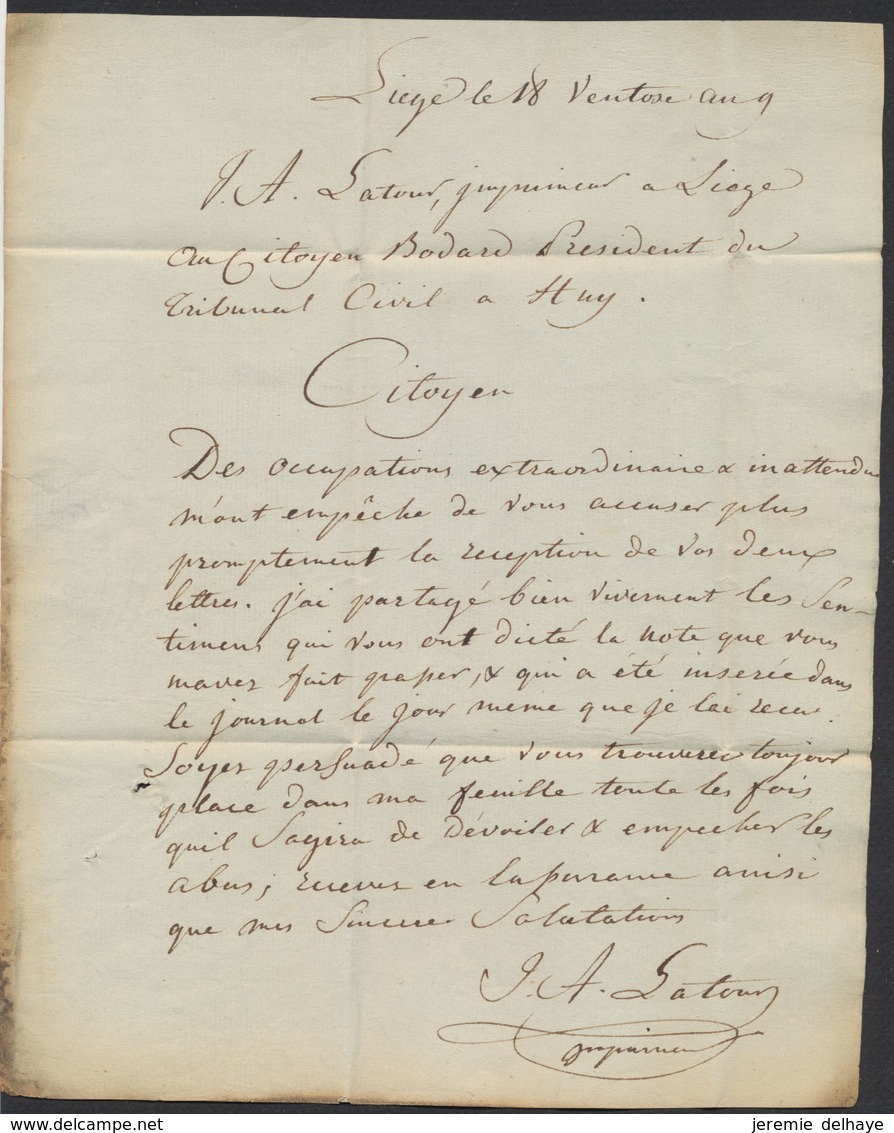 Liege le 18 Ventose an 9
J. A. Latour, jmprimeur a Liege
au Citoyen Bodard President du
Tribunal Civil a Huy.
Citoyen
Des occupations extraordinaire & inattendu
m'ont empêche de vous accuser plus
promptement la reception de vos deux
lettres. j'ai partagé bien vivement les Sen-
timens qui vous ont dicté la note que vous
mavez fait passer, & qui a été inserée dans
le journal le jour meme que je lai recu.
Soyez persuadé que vous trouverez toujour
place dans ma feuille toute les fois
quil Sagira de dévoiler & empecher les
abus; recevez en lassurance ainsi
que mes Sincere Salutations
J. A. Latour
jmprimeur
jeremie delhaye